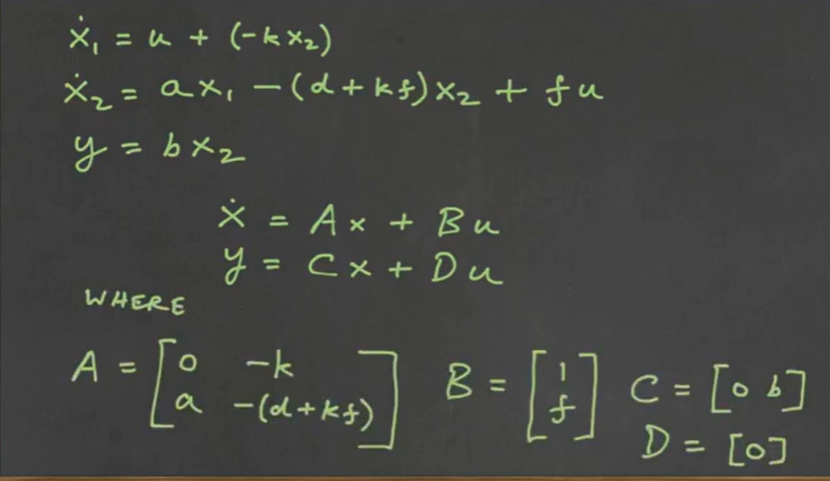 ẋ₁ = u + (-kx₂)
ẋ₂ = ax₁ - (d + kf)x₂ + fu
y = bx₂
ẋ = Ax + Bu
y = Cx + Du
WHERE
A = [0 -k; a -(d+kf)] B = [1; f] C = [0 b]
D = [0]